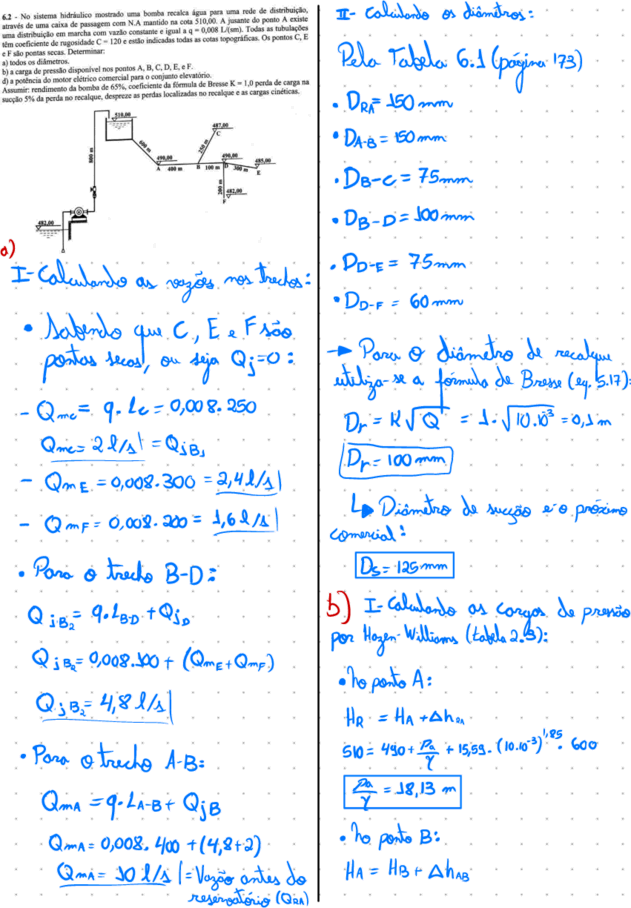 6.2 - No sistema hidráulico mostrado uma bomba recalca água para uma rede de distribuição,
através de uma caixa de passagem com N.A mantido na cota 510,00. A jusante do ponto A existe
uma distribuição em marcha com vazão constante e igual a q = 0,008 L/(sm). Todas as tubulações
têm coeficiente de rugosidade C = 120 e estão indicadas todas as cotas topográficas. Os pontos C, E
e F são pontas secas. Determinar:
a) todos os diâmetros.
b) a carga de pressão disponível nos pontos A, B, C, D, E, e F.
d) a potência do motor elétrico comercial para o conjunto elevatório.
Assumir: rendimento da bomba de 65%, coeficiente da fórmula de Bresse K = 1,0 perda de carga na
sucção 5% da perda no recalque, despreze as perdas localizadas no recalque e as cargas cinéticas.
510,00
487,00
C
600 m
250 m
800 m
490,00
490,00
485,00
A
400 m
B
100 m
D
300 m
E
200 m
482,00
F
482,00
a)
I- Calculando as vazões nos trechos:
• Sabendo que C, E e F são
pontas secas, ou seja Qj=0:
- Qmc = q.Lc = 0,008.250
Qmc = 2 l/s = QjB1
- QmE = 0,008.300 = 2,4 l/s
- QmF = 0,008.200 = 1,6 l/s
• Para o trecho B-D:
QjB2 = q.LBD + QjD
QjB2 = 0,008.100 + (QmE + QmF)
QjB2 = 4,8 l/s
• Para o trecho A-B:
QmA = q.LA-B + QjB
QmA = 0,008.400 + (4,8+2)
QmA = 10 l/s = Vazão antes do
reservatório (QRA)
II- Calculando os diâmetros:
Pela Tabela 6.1 (página 173)
• DRA = 150 mm
• DA-B = 150 mm
• DB-C = 75 mm
• DB-D = 100 mm
• DD-E = 75 mm
• DD-F = 60 mm
→ Para o diâmetro de recalque
utiliza-se a fórmula de Bresse (eq. 5.17):
Dr = K√Q = 1.√10.10³ = 0,1 m
Dr = 100 mm
↳ Diâmetro de sucção é o próximo
comercial:
Ds = 125 mm
b) I- Calculando as cargas de pressão
por Hazen-Williams (tabela 2.3):
• no ponto A:
HR = HA + ΔhRA
510 = 490 + Pa/γ + 15,59.(10.10⁻³)^1,85 . 600
Pa/γ = 18,13 m
• no ponto B:
HA = HB + ΔhAB